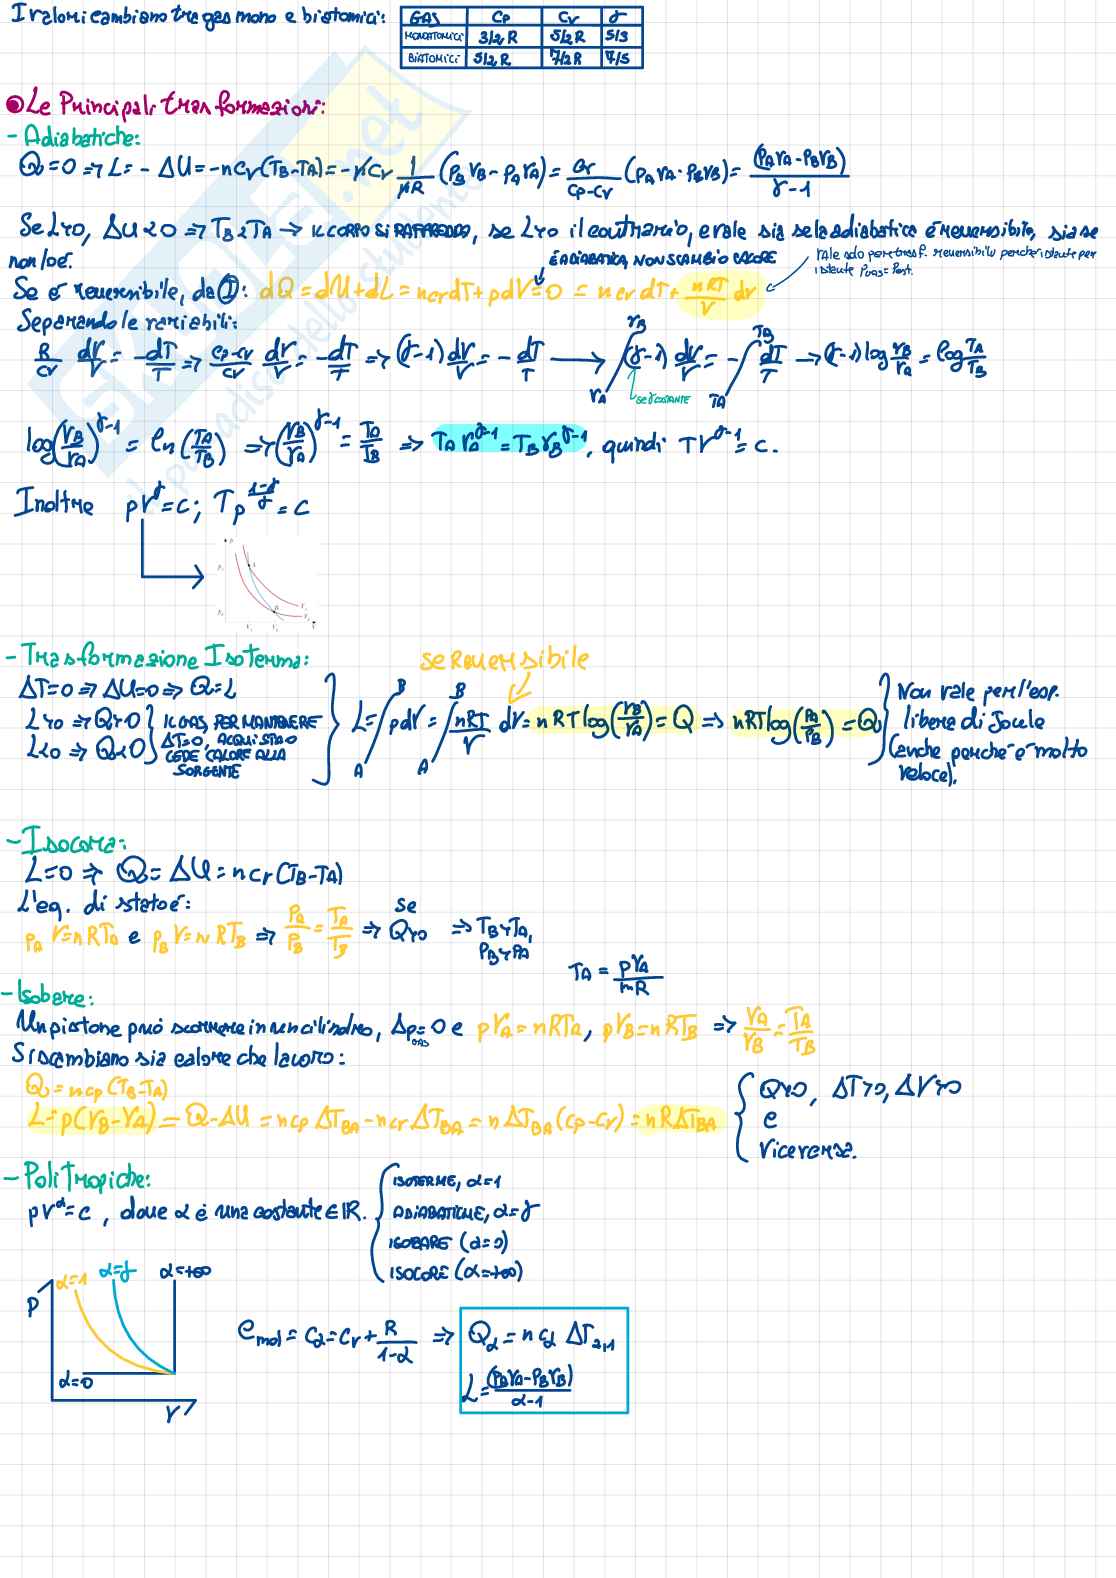 I valori cambiano tra gas mono e biatomici:
GAS Cp Cv γ
MONOATOMICI 3/2 R 5/2 R 5/3
BIATOMICI 5/2 R 7/2 R 7/5
Le Principali trasformazioni:
- Adiabatiche:
Q = 0 => L = - ΔU = -n Cv (TB - TA) = - n Cv 1/nR (PB VB - PA VA) = Cv/(Cp - Cv) (PA VA - PB VB) = (PA VA - PB VB)/(γ - 1)
Se L>0, ΔU<0 => TB<TA → IL CORPO SI RAFFREDDA, se L>0 il contrario, e vale sia se la adiabatica è reversibile, sia se
non lo è.
È ADIABATICA, NON SCAMBIO CALORE
Vale solo per trasf. reversibili perché istante per
istante Pgas = Pest.
Se è reversibile, da I: dQ = dU + dL = n cv dT + p dV = 0 = n cv dT + nRT/V dV
Separando le variabili:
R/cv dV/V = - dT/T => (cp - cv)/cv dV/V = - dT/T => (γ - 1) dV/V = - dT/T → ∫VA VB (γ - 1) dV/V = - ∫TA TB dT/T → (γ - 1) log VB/VA = log TA/TB
se γ costante
log (VB/VA)^γ-1 = ln (TA/TB) => (VB/VA)^γ-1 = TA/TB => TA VA^γ-1 = TB VB^γ-1, quindi TV^γ-1 = c.
Inoltre pV^γ = c; Tp^(1-γ)/γ = c
P
A
B
- Trasformazione Isoterma:
se Reversibile
ΔT = 0 => ΔU = 0 => Q = L
L>0 => Q>0
L<0 => Q<0
IL GAS, PER MANTENERE
ΔT=0, ACQUISTA O
CEDE CALORE ALLA
SORGENTE
L = ∫A B p dV = ∫A B nRT/V dV = nRT log (VB/VA) = Q => nRT log (PA/PB) = Q
Non vale per l'esp.
libera di Joule
(anche perché è molto
veloce).
- Isocora:
L = 0 => Q = ΔU = n cv (TB - TA)
L'eq. di stato è:
PA V = nRTA e PB V = nRTB => PA/PB = TA/TB => se Q>0 => TB>TA,
PB>PA
TA = pVA/nR
- Isobare:
Un pistone può scorrere in un cilindro, Δp GAS = 0 e pVA = nRTA, pVB = nRTB => VA/VB = TA/TB
Si scambiano sia calore che lavoro:
Q = n cp (TB - TA)
L = p(VB - VA) = Q - ΔU = n cp ΔTBA - n cv ΔTBA = n ΔTBA (cp - cv) = nRΔTBA
Q>0, ΔT>0, ΔV>0
e
viceversa.
- Politropiche:
pV^α = c, dove α è una costante ∈ ℝ.
ISOTERME, α=1
ADIABATICHE, α=γ
ISOBARE (α=0)
ISOCORE (α=+∞)
α=1 α=γ α=+∞
P
α=0
V
Cmol = Cα = Cv + R/(1-α) => Qα = n cα ΔT2,1
L = (PA VA - PB VB)/(α - 1)